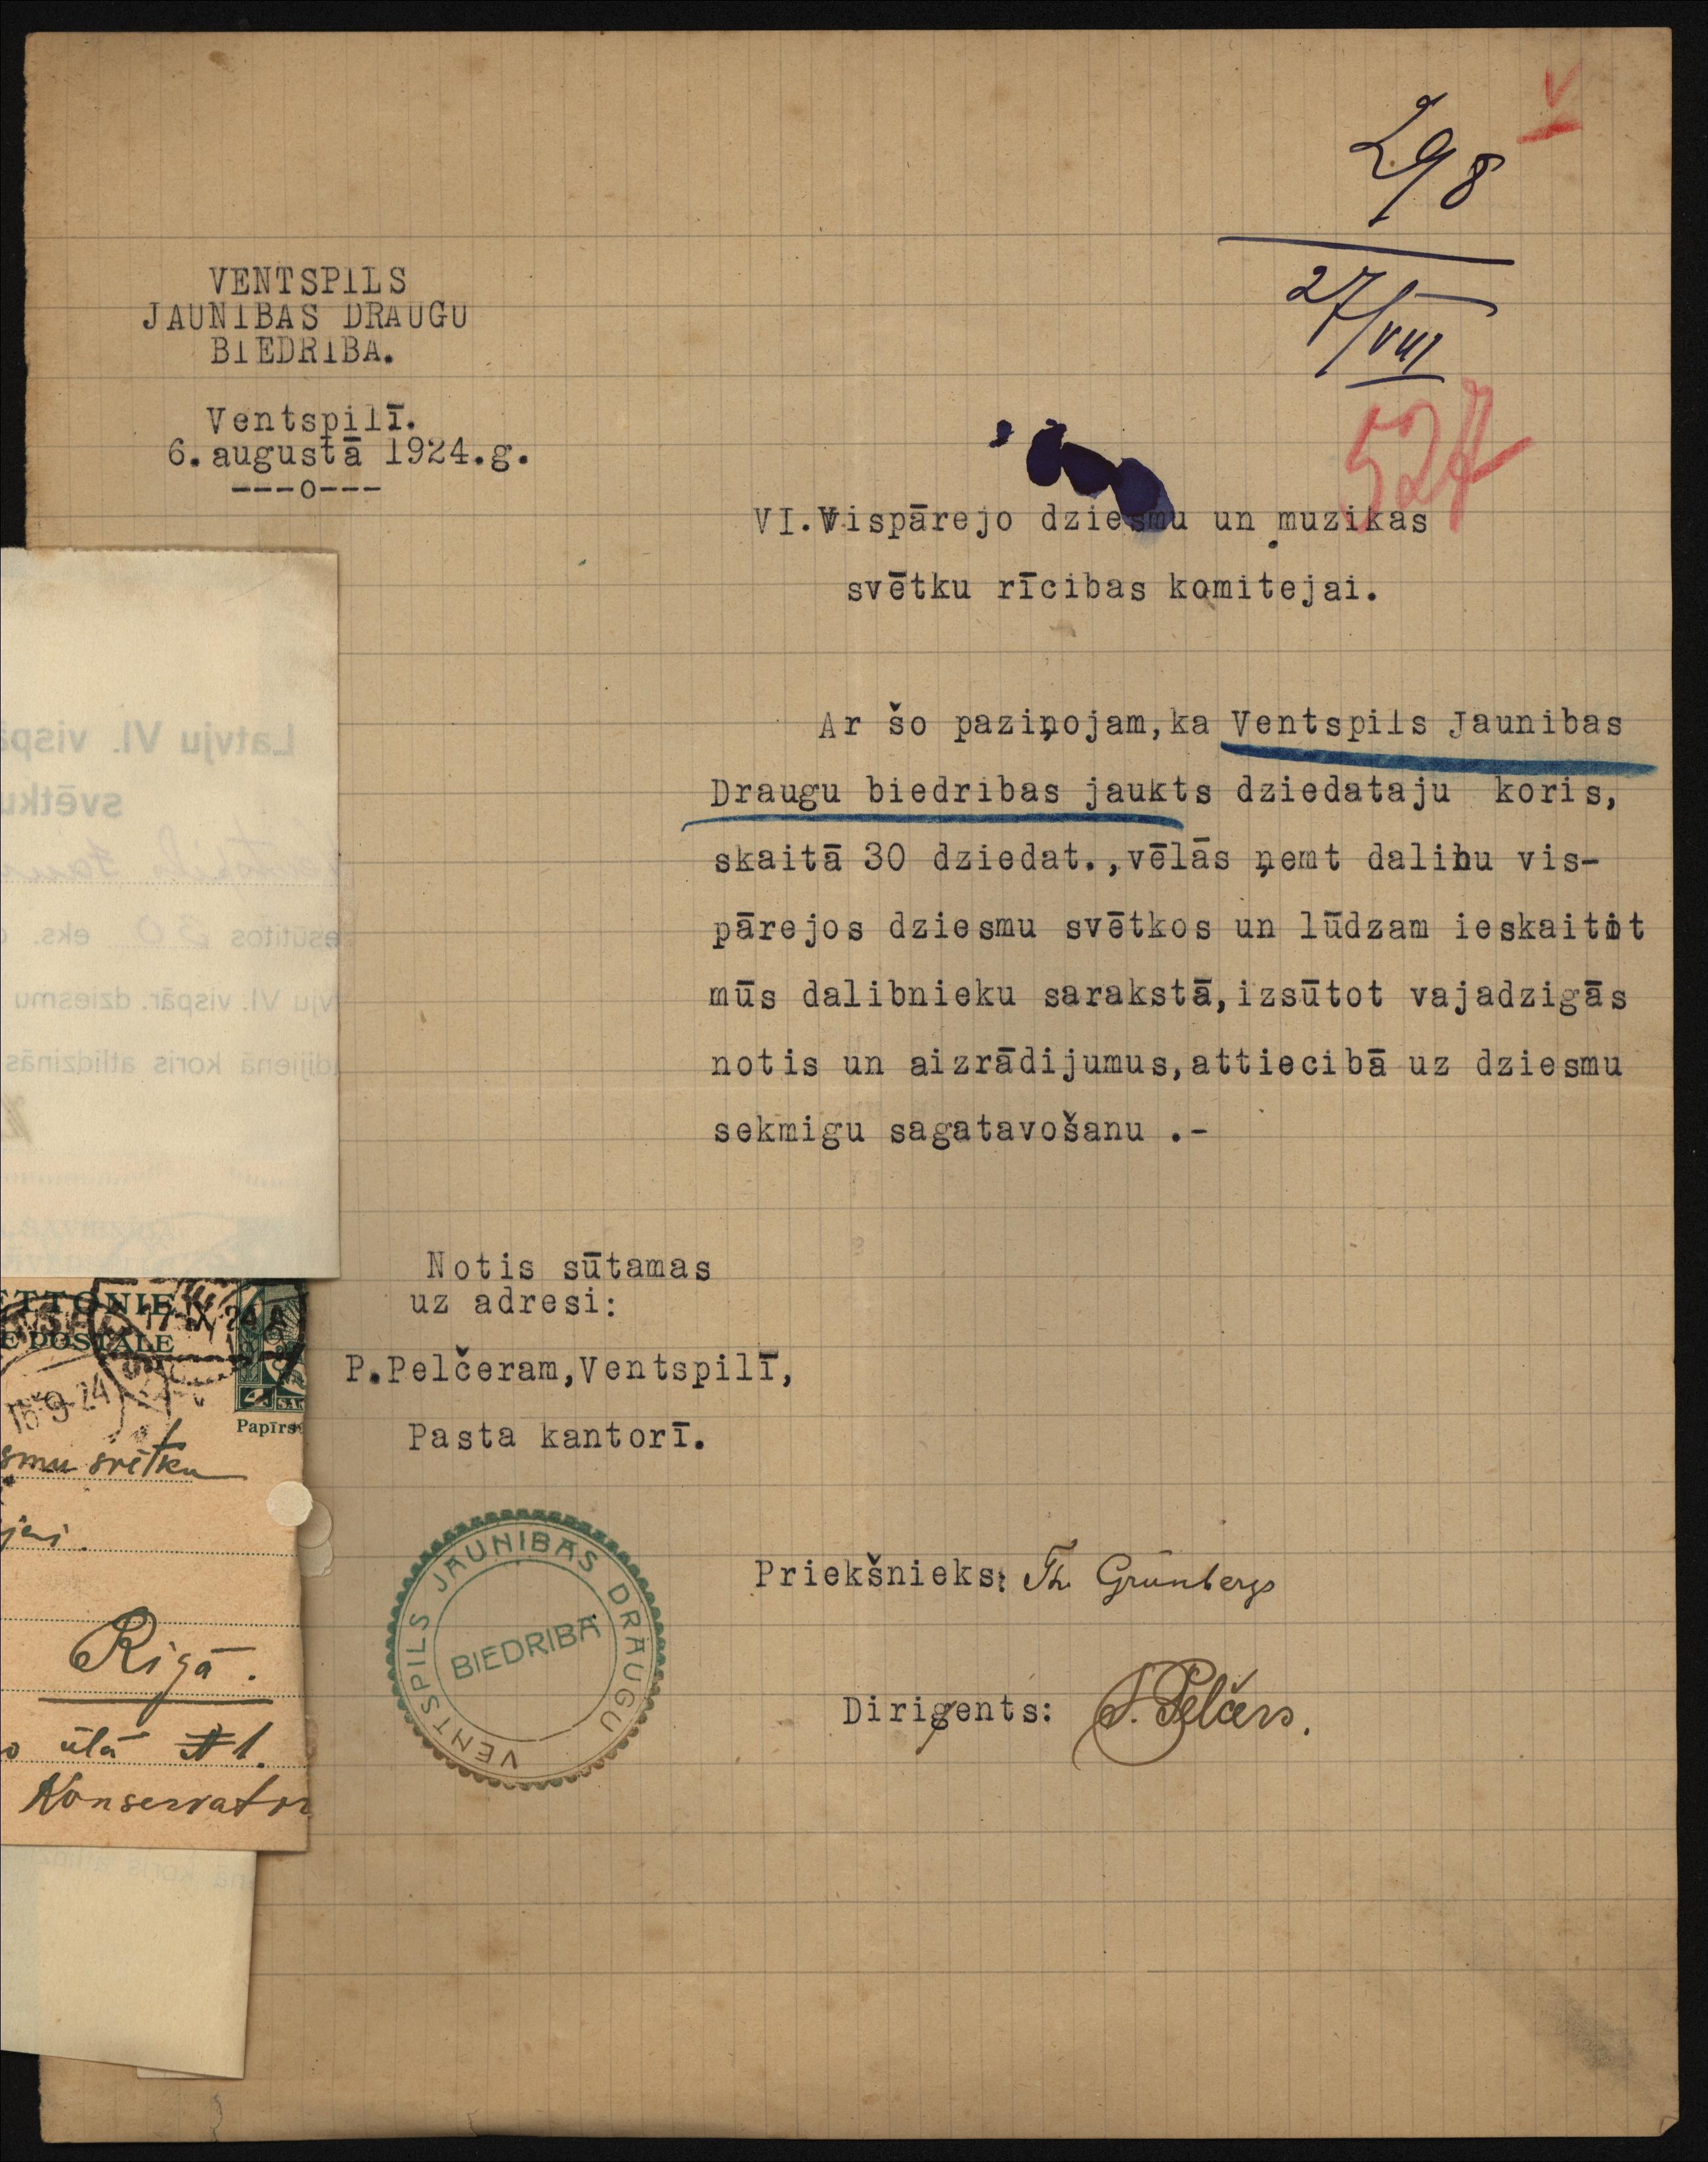 V
298
27/VIII
527
VENTSPILS
JAUNIBAS DRAUGU
BIEDRIBA.
Ventspilī.
6.augustā 1924.g.
---o---
VI.Vispārejo dziesmu un muzikas
svētku rīcibas komitejai.
Ar šo paziņojam,ka Ventspils Jaunibas
Draugu biedribas jaukts dziedataju koris,
skaitā 30 dziedat.,vēlās ņemt dalibu vis-
pārejos dziesmu svētkos un lūdzam ieskaitit
mūs dalibnieku sarakstā,izsūtot vajadzigās
notis un aizrādijumus,attiecibā uz dziesmu
sekmigu sagatavošanu .-
Notis sūtamas
uz adresi:
P.Pelčeram,Ventspilī,
Pasta kantorī.
VENTSPILS JAUNIBAS DRAUGU
BIEDRIBA
Priekšnieks: Th. Grünbergs
Dirigents: P. Pelčers.
Latvju VI. vispā
svētku
esūtītos 30 eks.
vju VI. vispār. dziesmu
koris atlīdzinās
ETTONIE
E POSTALE
17 IX 24
16-9-24
Papīrs
smu svētku
jai.
Rigā.
o ielā № 1.
Konservator